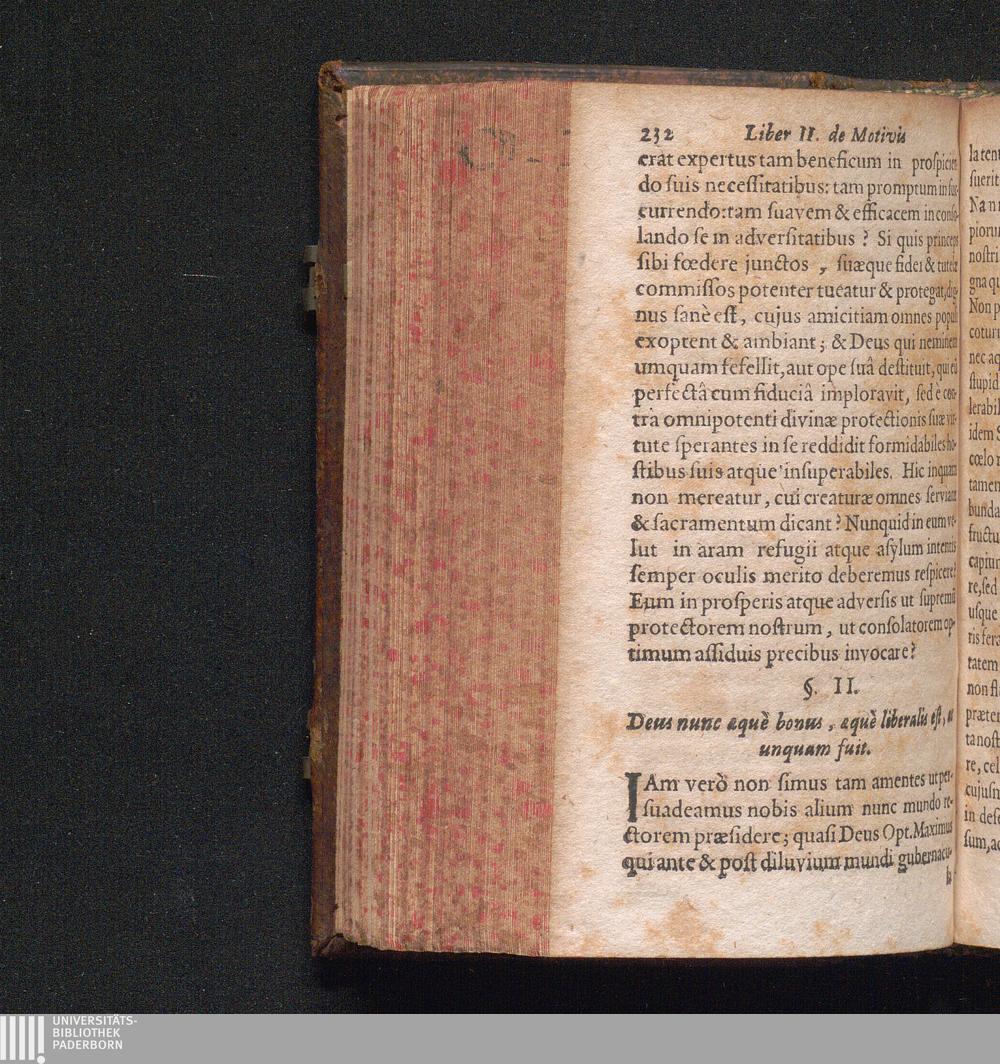 232 Liber II. de Motivis
erat expertus tam beneficum in proſpicien
do ſuis neceſſitatibus: tam promptum in ſuc
currendo: tam ſuavem & efficacem in conſo-
lando ſe in adverſitatibus ? Si quis princeps
ſibi fœdere junctos , ſuæque fidei & tutelæ
commiſſos potenter tueatur & protegat, dig-
nus ſanè eſt, cujus amicitiam omnes populi
exoptent & ambiant ; & Deus qui neminem
umquam fefellit, aut ope ſuâ deſtituit, qui eū
perfectâ cum fiduciâ imploravit, ſed è con-
tra omnipotenti divinæ protectionis ſuæ vir-
tute ſperantes in ſe reddidit formidabiles ho-
ſtibus ſuis atque inſuperabiles. Hic inquam
non mereatur, cui creaturæ omnes ſerviant
& ſacramentum dicant? Nunquid in eum ve-
lut in aram refugii atque aſylum intentis
ſemper oculis merito deberemus reſpicere?
Eum in proſperis atque adverſis ut ſupremū
protectorem noſtrum, ut conſolatorem op-
timum aſſiduis precibus invocare?
§. II.
Deus nunc æquè bonus, æquè liberalis eſt, ac
unquam fuit.
IAm verò non ſimus tam amentes ut per-
ſuadeamus nobis alium nunc mundo re-
ctorem præſidere; quaſi Deus Opt. Maximus
qui ante & poſt diluvium mundi gubernacu-
la
ſuerit
piorum
noſtri
gna qu
Non p
nec aq
ſtupid
idem S
cœlo r
tamen
bunda
fructu
re, ſed
uſque
tatem
non fl
præter
ta noſt
re, cel
in deſe
ſum, ac
UNIVERSITÄTS-
BIBLIOTHEK
PADERBORN